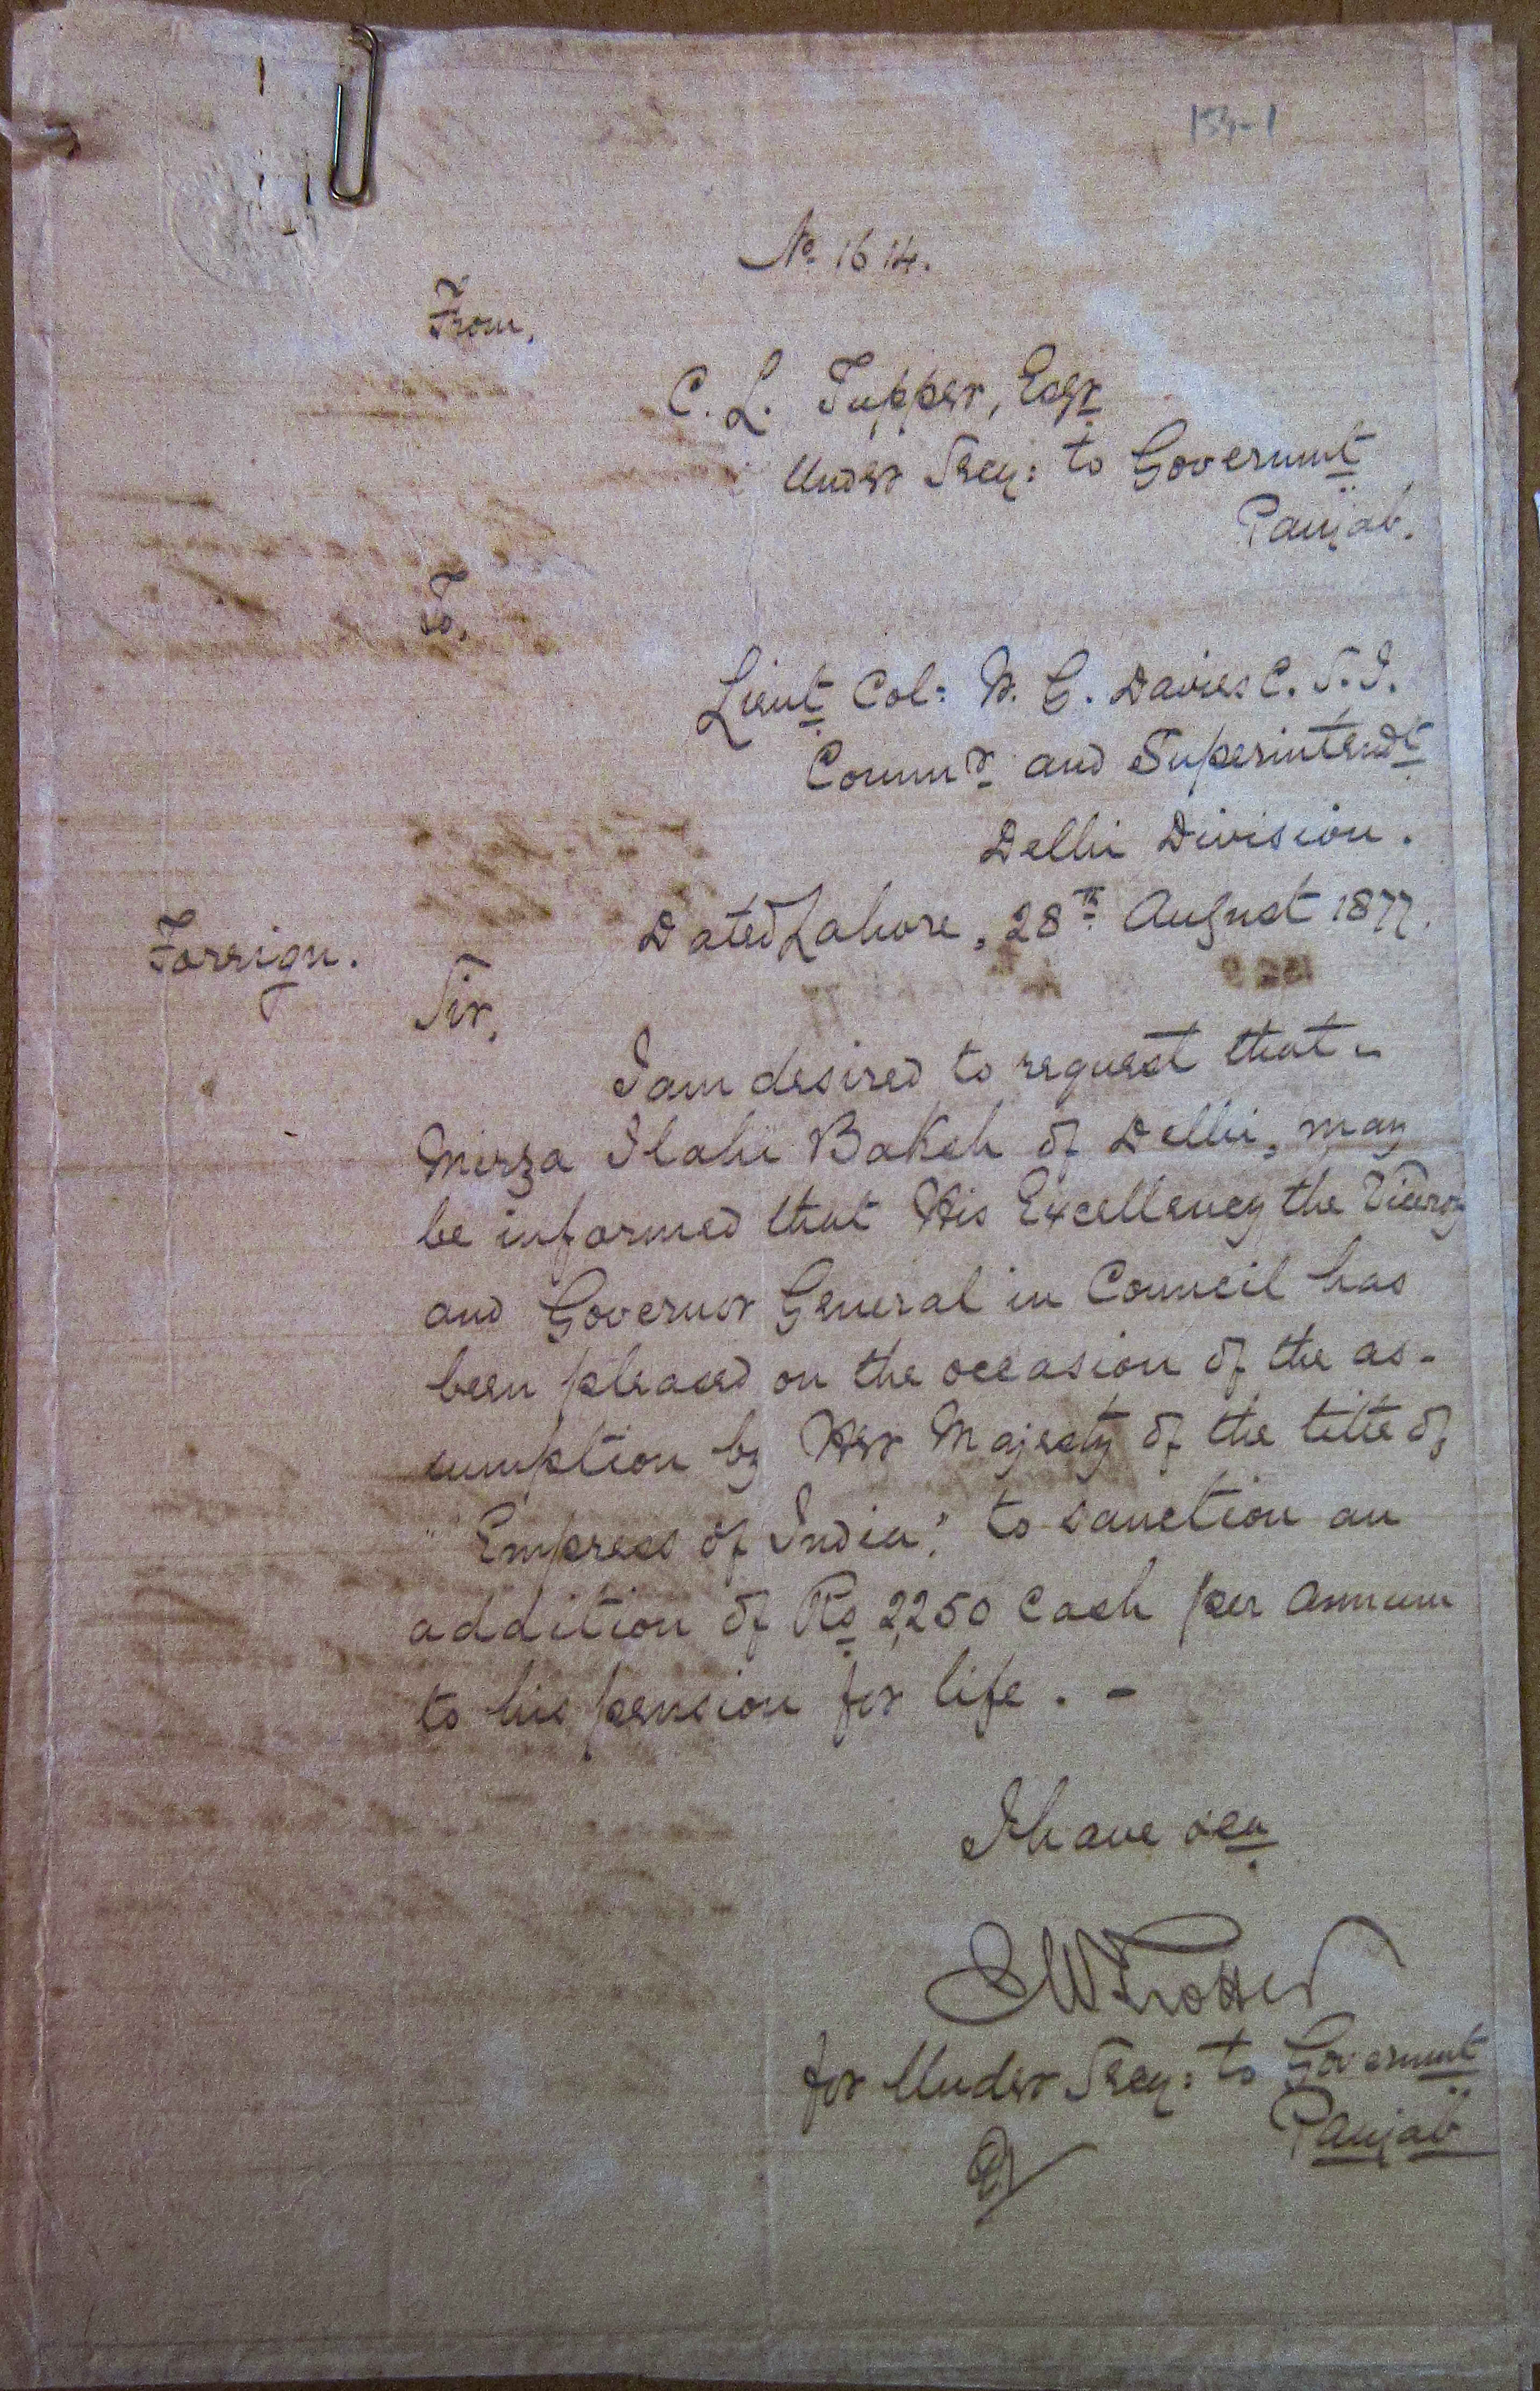 154-1
No. 1614.
From,
C. L. Tupper, Esqr
Under Secy: to Governmt
Panjab.
To,
Lieut Col: W. G. Davies C. S. I.
Commr and Superintendt
Delhi Division.
Dated Lahore, 28th August 1877.
Foreign.
Sir,
I am desired to request that
Mirza Ilahi Baksh of Delhi, may
be informed that His Excellency the Viceroy
and Governor General in Council has
been pleased on the occasion of the as-
sumption by Her Majesty of the title of
"Empress of India," to sanction an
addition of Rs 2,250 Cash per annum
to his pension for life. -
I have &ca
Trotter
for Under Secy: to Governmt
Panjab